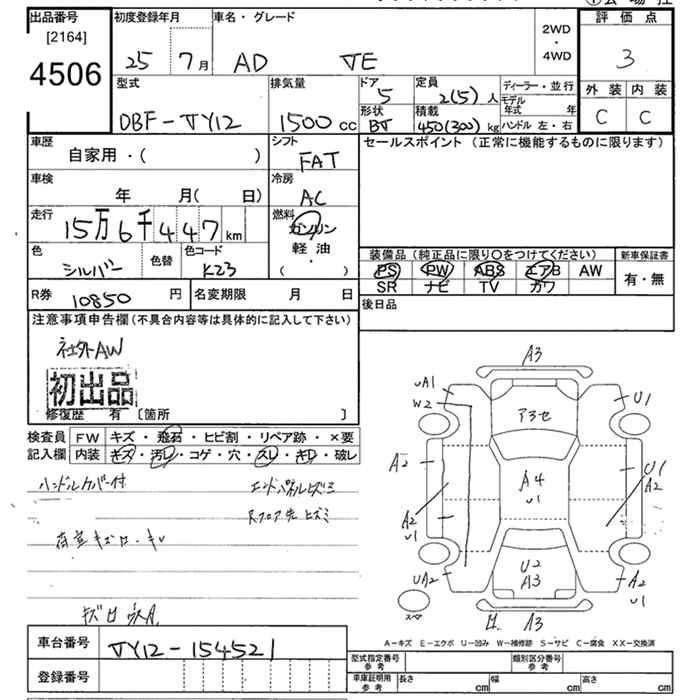 出品番号
[2164]
4506
初度登録年月
25 7月
車名・グレード
AD VE
2WD
・
4WD
評価点
3
型式
DBF-VY12
排気量
1500 cc
ドア
5
形状
BV
定員
2(5)人
積載
450(300)kg
ディーラー・並行
モデル年式 年
ハンドル 左・右
外装 内装
C C
車歴
自家用・( )
シフト
FAT
セールスポイント (正常に機能するものに限ります)
車検
年 月( 日)
冷房
AC
走行
15万6千447km
燃料
ガソリン
軽油
・
( )
色
シルバー
色替
色コード
K23
装備品 (純正品に限り○をつけてください)
PS PW ABS エアB AW
SR ナビ TV カワ
新車保証書
有・無
R券 10850 円
名変期限 月 日
後日品
注意事項申告欄 (不具合内容等は具体的に記入して下さい)
社外AW
初出品
修復歴 有 [箇所 ]
検査員
記入欄
FW キズ・飛石・ヒビ割・リペア跡・×要
内装 キズ・汚レ・コゲ・穴・スレ・キレ・破レ
ハンドルカバー付
エンドパネルヒズミ
Rフロア先ヒズミ
荷室キズ ワレ・キレ
A3
UA1
W2
アラセ
U1
A2
A4
U1
U1
A2
A2
U1
UA2
U2
A3
A2
U1
スペア
A3
車台番号
VY12-154521
登録番号
A-キズ E-エクボ U-凹み W-補修跡 S-サビ C-腐食 XX-交換済
型式指定番号
参考
類別区分番号
参考
車庫証明用
参考
長さ cm
幅 cm
高さ cm